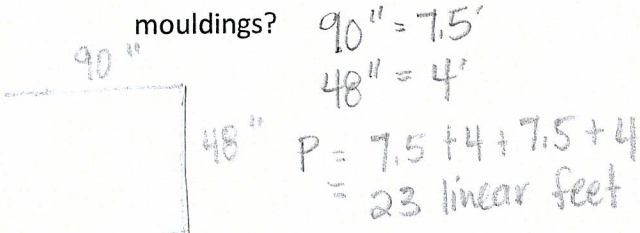 mouldings?
90" = 7.5'
90"
48" = 4'
48"
P = 7.5 + 4 + 7.5 + 4
= 23 linear feet